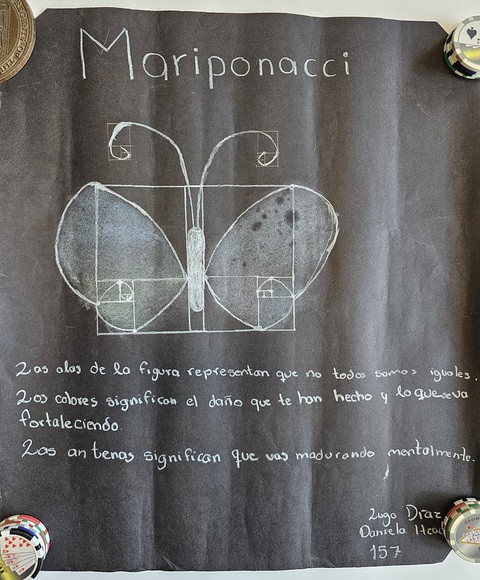 Mariponacci
Las alas de la figura representan que no todos somos iguales.
Los colores significan el daño que te han hecho y lo que se va
fortaleciendo.
Las antenas significan que vas madurando mentalmente.
Lugo Díaz
Daniela
157